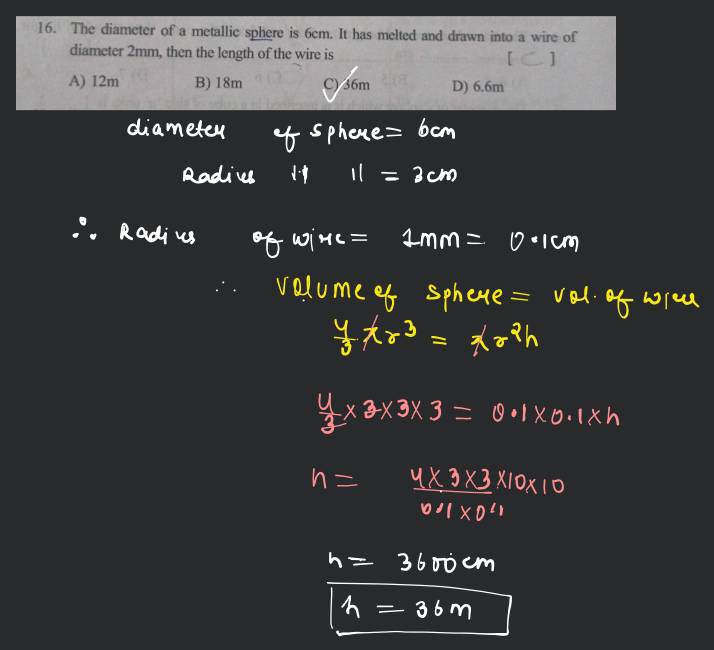 16. The diameter of a metallic sphere is 6cm. It has melted and drawn into a wire of
diameter 2mm, then the length of the wire is [ C ]
A) 12m B) 18m C) 36m D) 6.6m
diameter of sphere = 6cm
Radius " " = 3cm
∴ Radius of wire = 1mm = 0.1cm
∴ Volume of sphere = vol. of wire
4/3 πr³ = πr²h
4/3 × 3 × 3 × 3 = 0.1 × 0.1 × h
h = 4 × 3 × 3 × 10 × 10 / 0.1 × 0.1
h = 3600cm
h = 36m